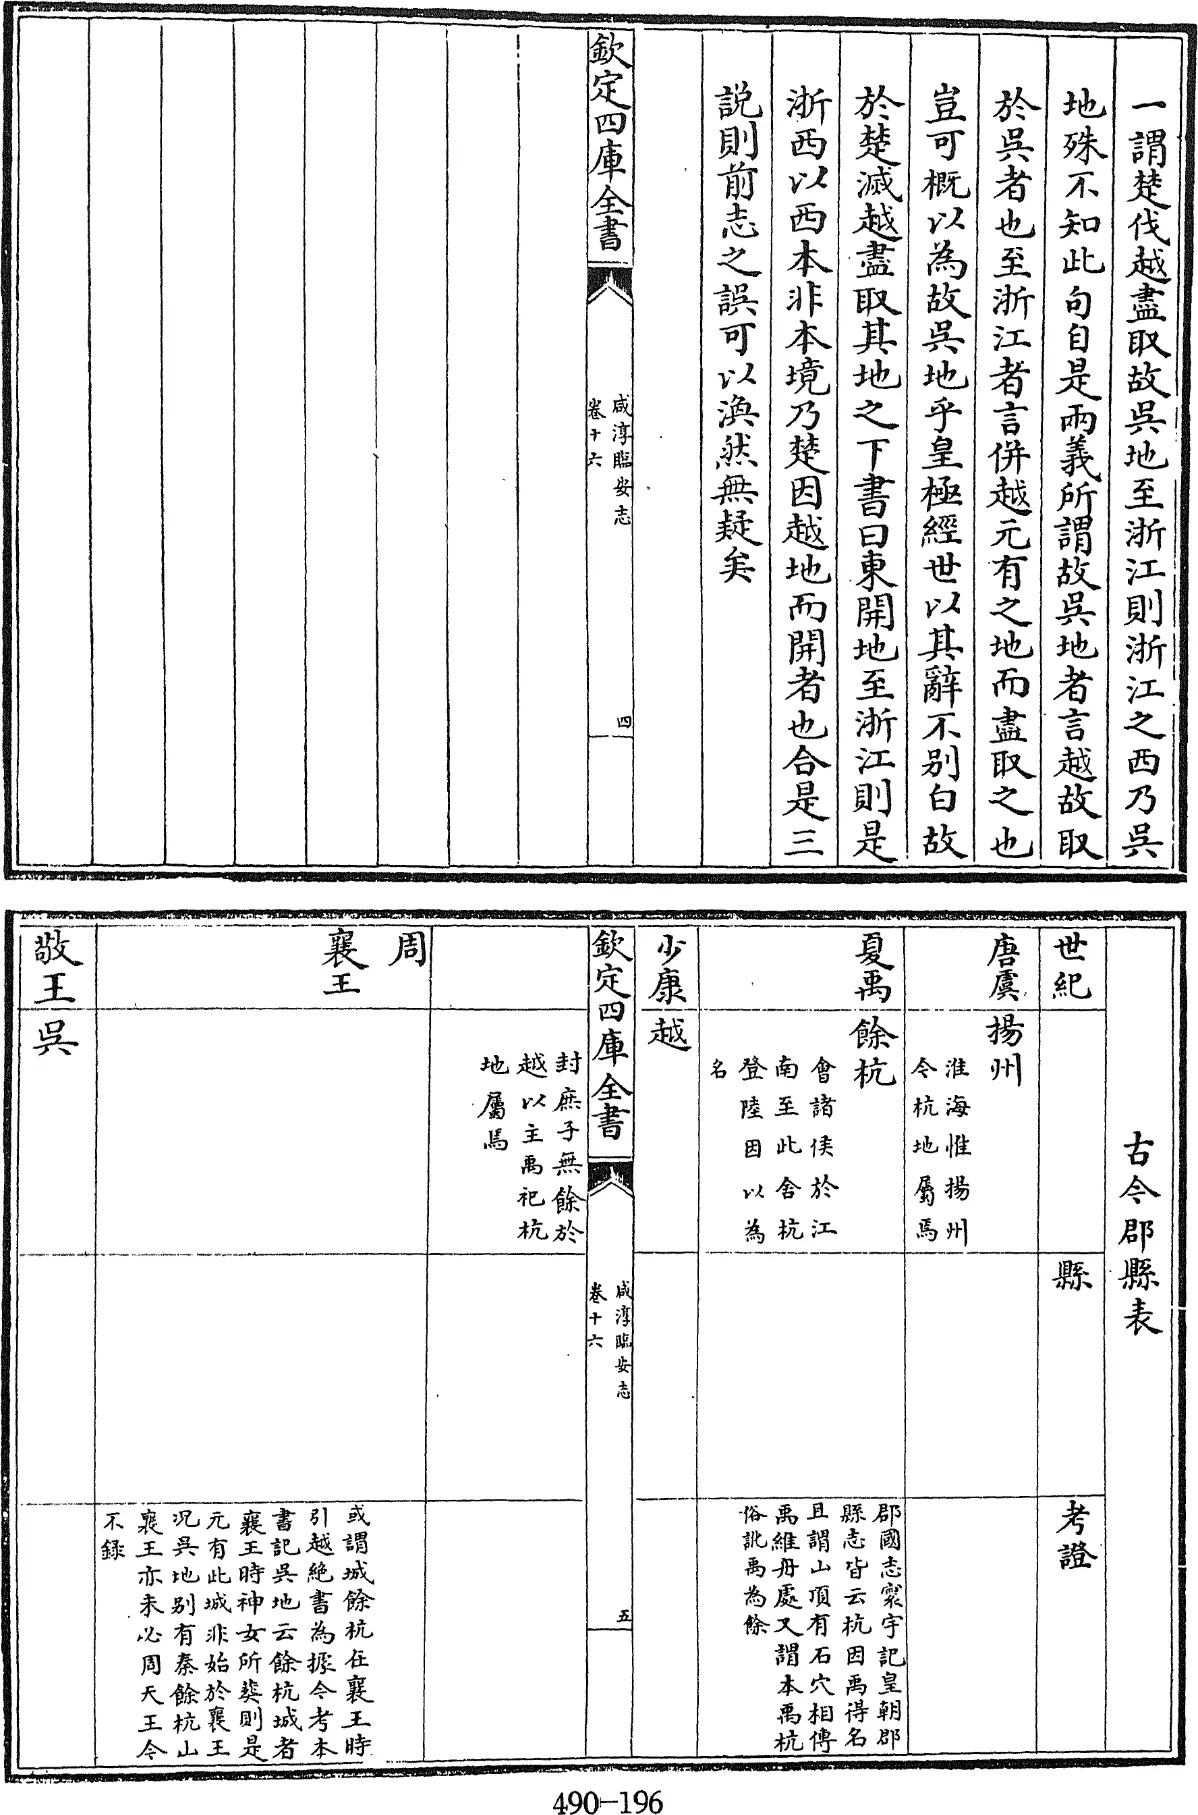 一謂楚伐越盡取故吳地至浙江則浙江之西乃吳
地殊不知此句自是兩義所謂故吳地者言越故取
於吳者也至浙江者言併越元有之地而盡取之也
豈可概以為故吳地乎皇極經世以其辭不别白故
於楚滅越盡取其地之下書曰東開地至浙江則是
浙西以西本非本境乃楚因越地而開者也合是三
説則前志之誤可以渙然無疑矣
欽定四庫全書
咸淳臨安志
卷十六
四
古今郡縣表
世紀
縣
考證
唐虞
揚州
淮海惟揚州
今杭地屬焉
夏禹
餘杭
會諸侯於江
南至此舍杭
登陸因以為
名
郡國志寰宇記皇朝郡
縣志皆云杭因禹得名
且謂山頂有石穴相傳
禹維舟處又謂本禹杭
俗訛禹為餘
少康
越
欽定四庫全書
咸淳臨安志
卷十六
五
封庶子無餘於
越以主禹祀杭
地屬焉
周
襄王
或謂城餘杭在襄王時
引越絶書為據今考本
書記吳地云餘杭城者
襄王時神女所葬則是
元有此城非始於襄王
况吳地别有秦餘杭山
襄王亦未必周天王今
不録
敬王
吳
490-196